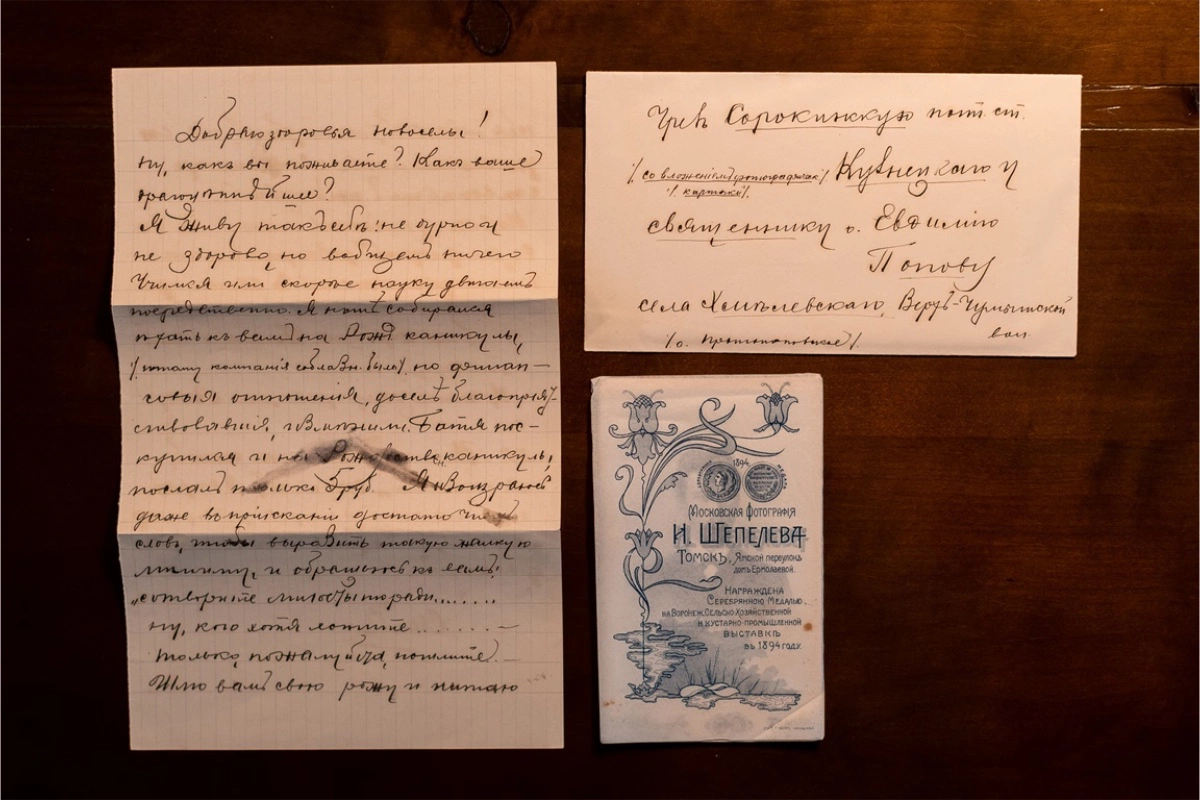 Доброго здоровья новоселы!
Ну, какъ вы поживаете? Какъ ваше
Я живу такъ себѣ: не дурно и
не здорово, но вобщемъ ничего
Учимся или скорѣе науку двигаемъ
посредственно. Я былъ собирался
ѣхать къ вамъ на Рожд. каникулы,
компанія была но финан-
совыя отношенія, доселѣ благопріят-
ствовавшія, измѣнили. Батя пос-
купился и на Рождествен. каникулы
послалъ только 5 руб. Я
даже въ пріисканіи достаточныхъ
словъ, чтобы выразить такую жалкую
и обращаюсь къ вамъ:
„сотворите милостыню ради.......
Ну, кого хотя хотите ........ —
только, пожалуйста, пошлите. —
Шлю вамъ свою рожу и питаю
Чрезъ Сорокинскую почт. ст.
/со вложеніемъ фотографическ./ Кузнецкаго у
/карточки/.
священнику о. Евфимію
Попову
села Хмѣлевскаго, Верхъ-Чумышской
вол.
1894
Московская фотографія
И. Шепелева
Томскъ, Ямской переулокъ
домъ Ермолаевой.
Награждена
Серебрянною Медалью
на Воронеж. Сельско-Хозяйственной
и кустарно-промышленной
выставкѣ
въ 1894 году.